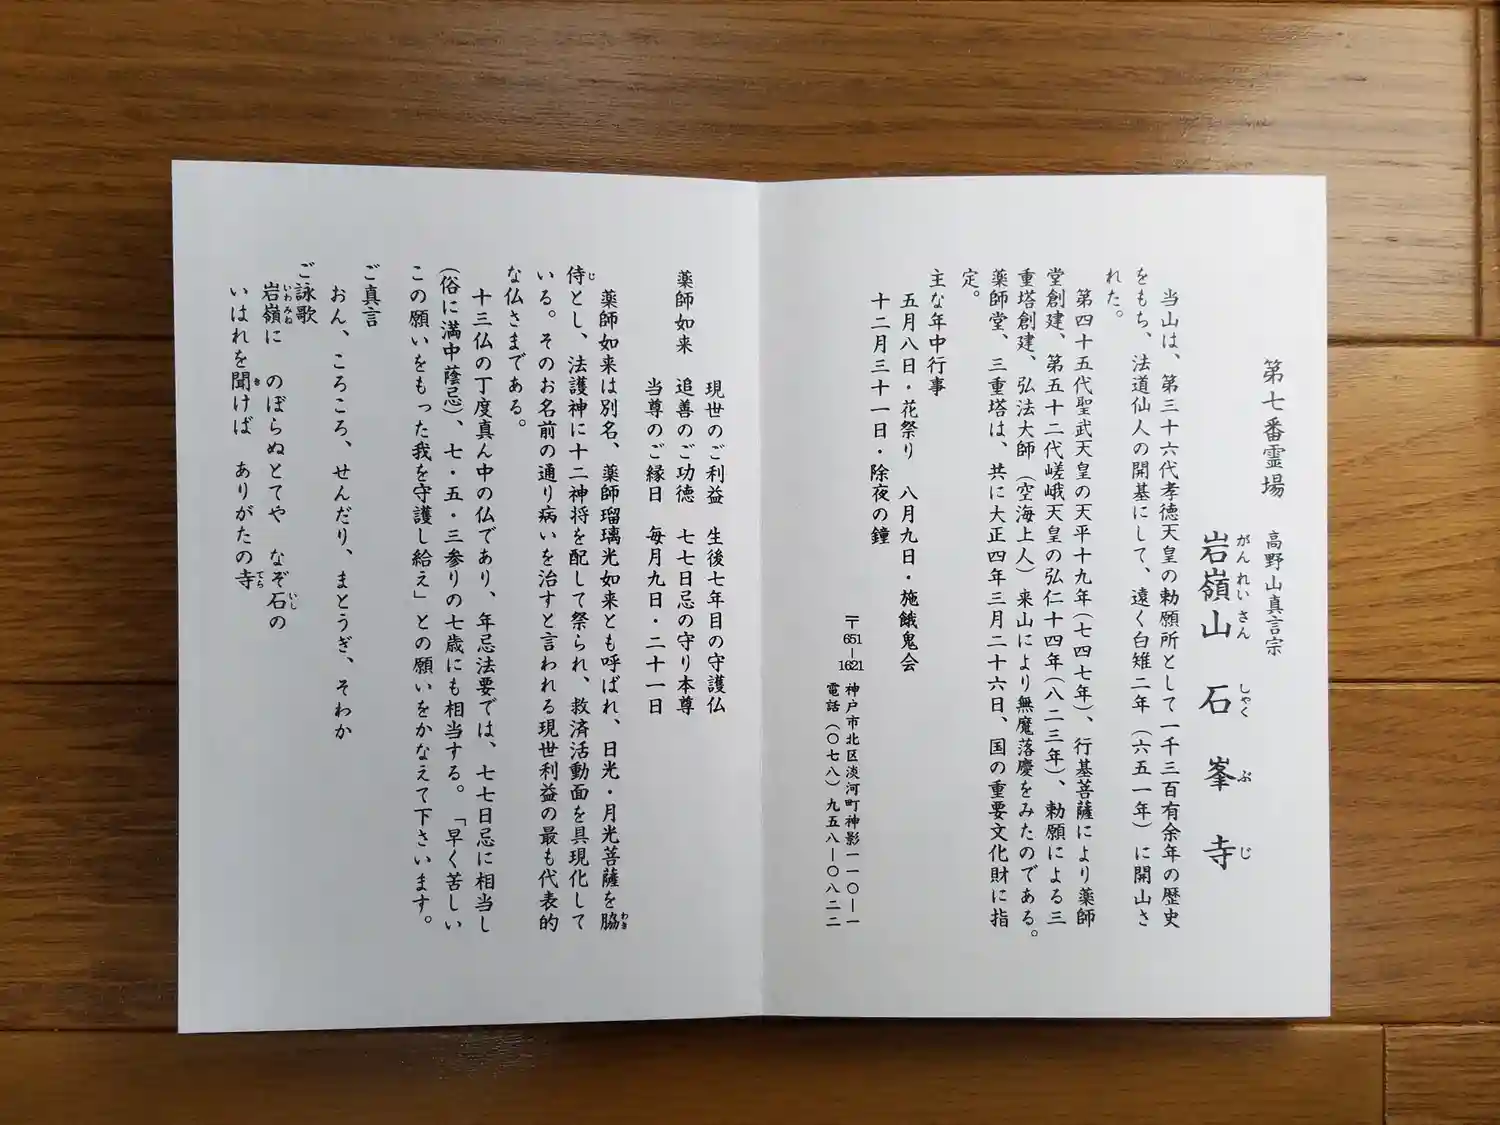 第七番霊場
高野山真言宗
岩嶺山 石峯寺
がんれいさん しゃくぶじ
当山は、第三十六代孝徳天皇の勅願所として一千三百有余年の歴史
をもち、法道仙人の開基にして、遠く白雉二年(六五一年)に開山さ
れた。
第四十五代聖武天皇の天平十九年(七四七年)、行基菩薩により薬師
堂創建、第五十二代嵯峨天皇の弘仁十四年(八二三年)、勅願による三
重塔創建、弘法大師(空海上人)来山により無魔落慶をみたのである。
薬師堂、三重塔は、共に大正四年三月二十六日、国の重要文化財に指
定。
主な年中行事
五月八日・花祭り 八月九日・施餓鬼会
十二月三十一日・除夜の鐘
〒651-1621 神戸市北区淡河町神影一一〇—一
電話(〇七八)九五八—〇八二二
現世のご利益 生後七年目の守護仏
薬師如来 追善のご功徳 七七日忌の守り本尊
当尊のご縁日 毎月九日・二十一日
薬師如来は別名、薬師瑠璃光如来とも呼ばれ、日光・月光菩薩を脇わき
侍じとし、法護神に十二神将を配して祭られ、救済活動面を具現化して
いる。そのお名前の通り病いを治すと言われる現世利益の最も代表的
な仏さまである。
十三仏の丁度真ん中の仏であり、年忌法要では、七七日忌に相当し
(俗に満中蔭忌)、七・五・三参りの七歳にも相当する。「早く苦しい
この願いをもった我を守護し給え」との願いをかなえて下さいます。
ご真言
おん、ころころ、せんだり、まとうぎ、そわか
ご詠歌
岩嶺いわみねに のぼらぬとてや なぞ石いしの
いはれを聞きけば ありがたの寺てら